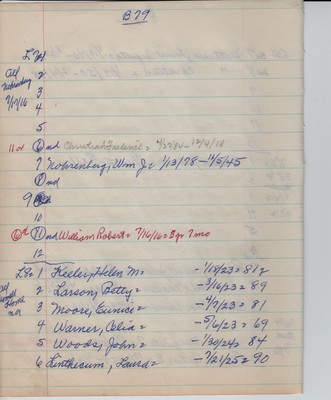 B79
L 71
all
Nohrenberg 2
7/17/16 3
4
5
11 or 6 nd Christiah Frederick = 4/27/84 - 12/4/18
7 Nohrenberg, Wm Jr 1/13/78 - 11/5/45
8 nd
9
10
6 or 11 nd William Robert = 7/16/16 = 8 yr 7 mo
12
L 80 1 Keeler, Helen M = -1/18/23 = 81
all
2 Larson, Betty = -3/16/23 = 89
Home 3 Moore, Eunice = -4/7/23 = 81
4 Warner, Celia = -5/6/23 = 69
5 Woods, John = -1/30/24 = 84
6 Linthecum, Laura = -7/21/25 = 90